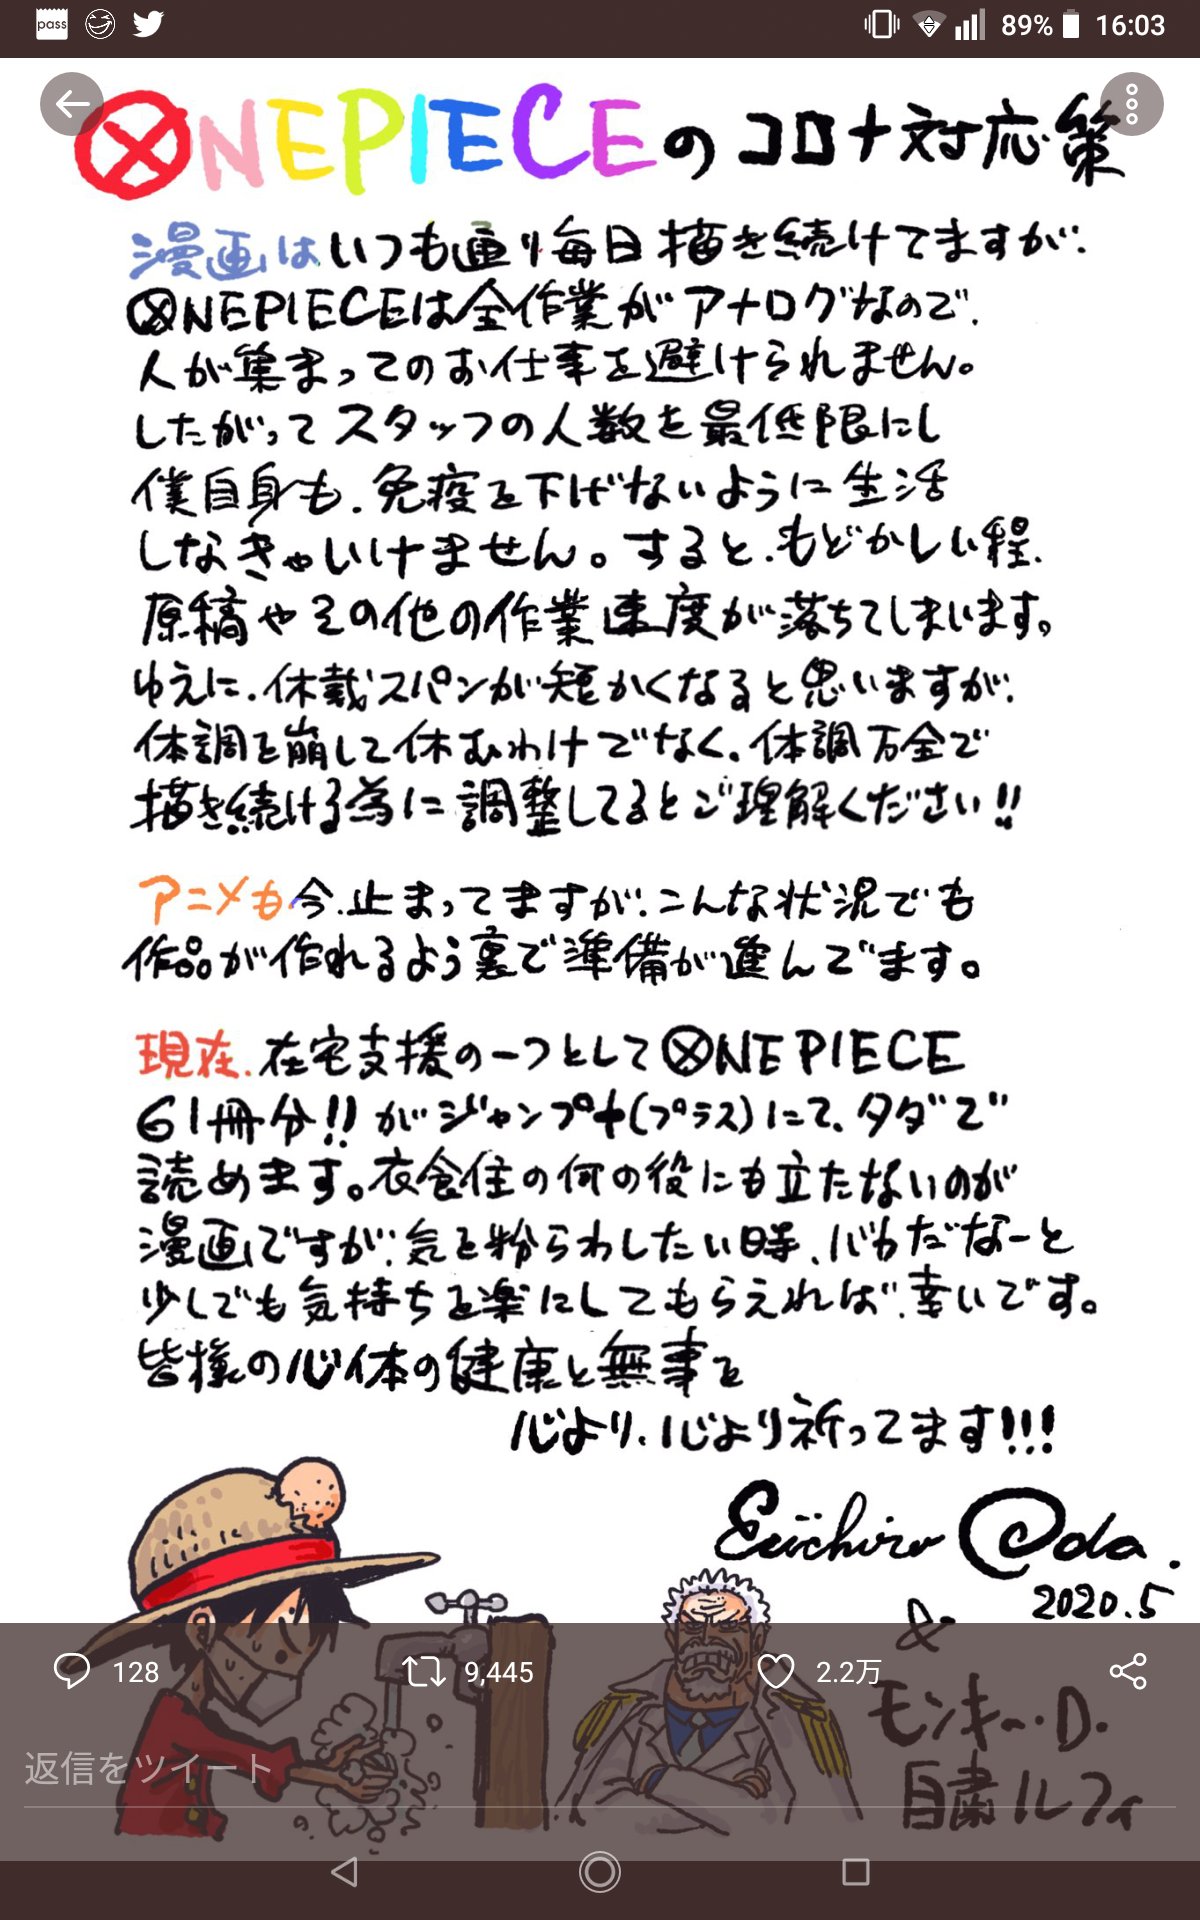 pass
89%
16:03
ONEPIECEのコロナ対応策
漫画はいつも通り毎日描き続けてますが、
ONEPIECEは全作業がアナログなので、
人が集まってのお仕事を避けられません。
したがってスタッフの人数を最低限にし
僕自身も、免疫を下げないように生活
しなきゃいけません。すると、もどかしい程、
原稿やその他の作業速度が落ちてしまいます。
ゆえに、休載スパンが短かくなると思いますが、
体調を崩して休むわけでなく、体調万全で
描き続ける為に調整してるとご理解ください!!
アニメも今、止まってますが、こんな状況でも
作品が作れるよう裏で準備が進んでます。
現在、在宅支援の一つとしてONEPIECE
61冊分!!がジャンプ+(プラス)にて、タダで
読めます。衣食住の何の役にも立たないのが
漫画ですが、気を紛らわしたい時、バカだなーと
少しでも気持ちを楽にしてもらえれば、幸いです。
皆様の心体の健康と無事を
心より、心より祈ってます!!!
Eiichiro Oda.
2020.5
&
モンキー・D・
自粛ルフィ
128
9,445
2.2万
返信をツイート